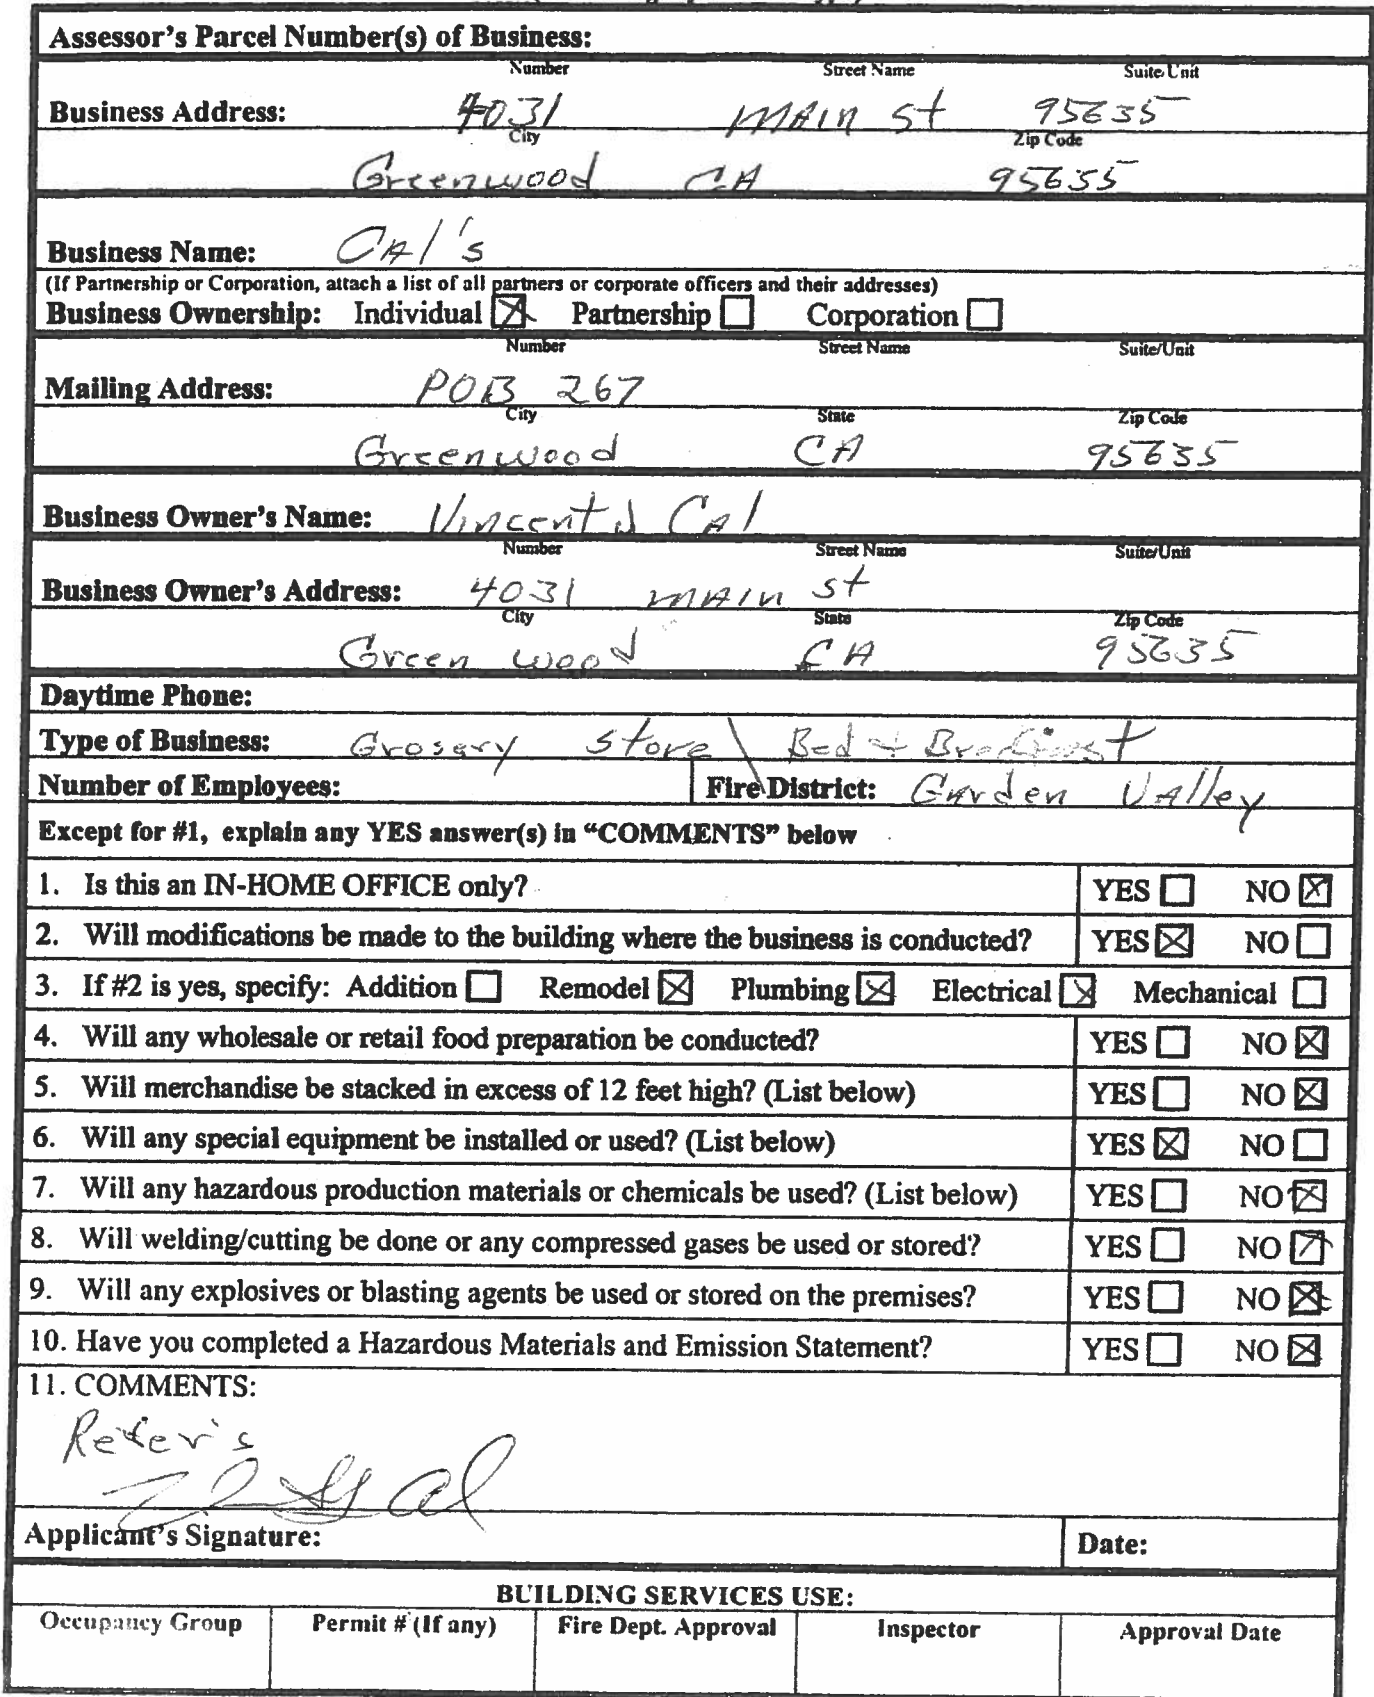 Assessor's Parcel Number(s) of Business:
Number Street Name Suite/Unit
Business Address: 4031 MAIN St 95635
City Zip Code
Greenwood CA 95635
Business Name: CAl's
(If Partnership or Corporation, attach a list of all partners or corporate officers and their addresses)
Business Ownership: Individual ☒ Partnership ☐ Corporation ☐
Number Street Name Suite/Unit
Mailing Address: POB 267
City State Zip Code
Greenwood CA 95635
Business Owner's Name: Vincent J CAl
Number Street Name Suite/Unit
Business Owner's Address: 4031 MAIN St
City State Zip Code
Green wood CA 95635
Daytime Phone:
Type of Business: Grosery Store \ Bed + Breakfast
Number of Employees: Fire District: GArden VAlley
Except for #1, explain any YES answer(s) in "COMMENTS" below
1. Is this an IN-HOME OFFICE only? YES ☐ NO ☒
2. Will modifications be made to the building where the business is conducted? YES ☒ NO ☐
3. If #2 is yes, specify: Addition ☐ Remodel ☒ Plumbing ☒ Electrical ☒ Mechanical ☐
4. Will any wholesale or retail food preparation be conducted? YES ☐ NO ☒
5. Will merchandise be stacked in excess of 12 feet high? (List below) YES ☐ NO ☒
6. Will any special equipment be installed or used? (List below) YES ☒ NO ☐
7. Will any hazardous production materials or chemicals be used? (List below) YES ☐ NO ☒
8. Will welding/cutting be done or any compressed gases be used or stored? YES ☐ NO ☒
9. Will any explosives or blasting agents be used or stored on the premises? YES ☐ NO ☒
10. Have you completed a Hazardous Materials and Emission Statement? YES ☐ NO ☒
11. COMMENTS:
Refer's
Applicant's Signature: Date:
BUILDING SERVICES USE:
Occupancy Group Permit # (If any) Fire Dept. Approval Inspector Approval Date